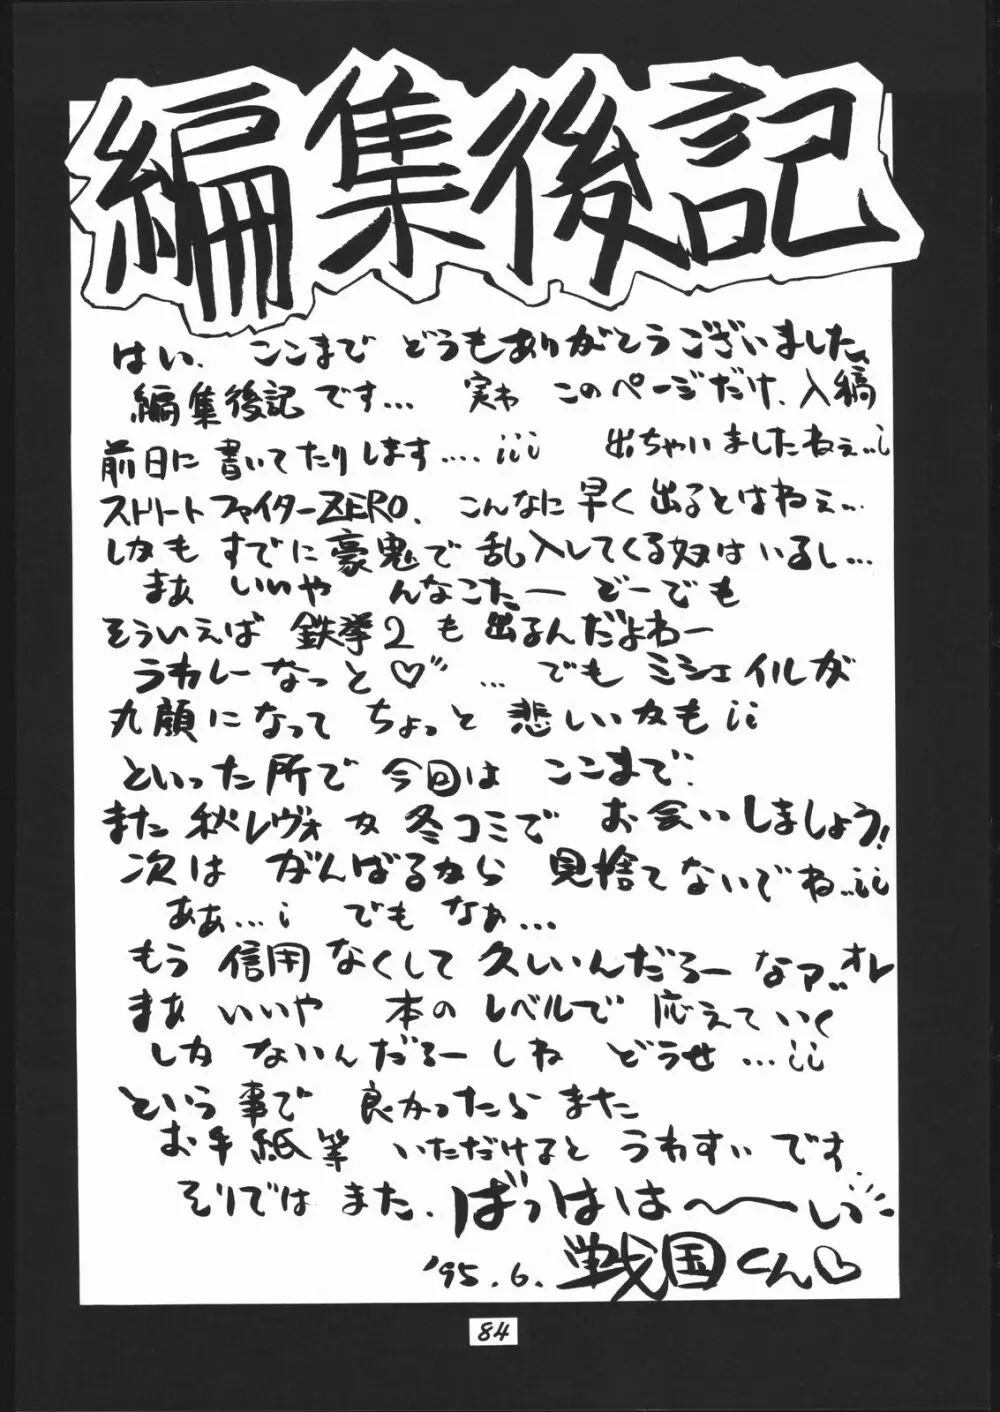 編集後記
はい、ここまで どうもありがとうございました、
編集後記です… 実わ このページだけ、入稿
前日に書いてたりします….iii 出ちゃいましたねぇ..i
ストリートファイターZERO、こんなに早く出るとはねぇ…
しかも すでに豪鬼で乱入してくる奴はいるし…
まぁ いいや んなこたー どーでも
そういえば 鉄拳2も出るんだよねー
うれしーなっと♡ … でも ミシェイルが
丸顔になって ちょっと 悲しいカモii
といった所で 今回は ここまで.
また 秋レヴォか冬コミで お会いしましょう!
次は がんばるから 見捨てないでね..ii
ああ…i でも なぁ…
もう 信用なくして久しいんだろーなァ..オレ
まぁ いいや 本の レベルで 応えていく
しか ないんだろーしね どうせ …ii
という事で 良かったら また
お手紙等 いただけると うれすぃです.
そりでは また. ばっはは〜〜い
'95.6. 戦国くん♡
84